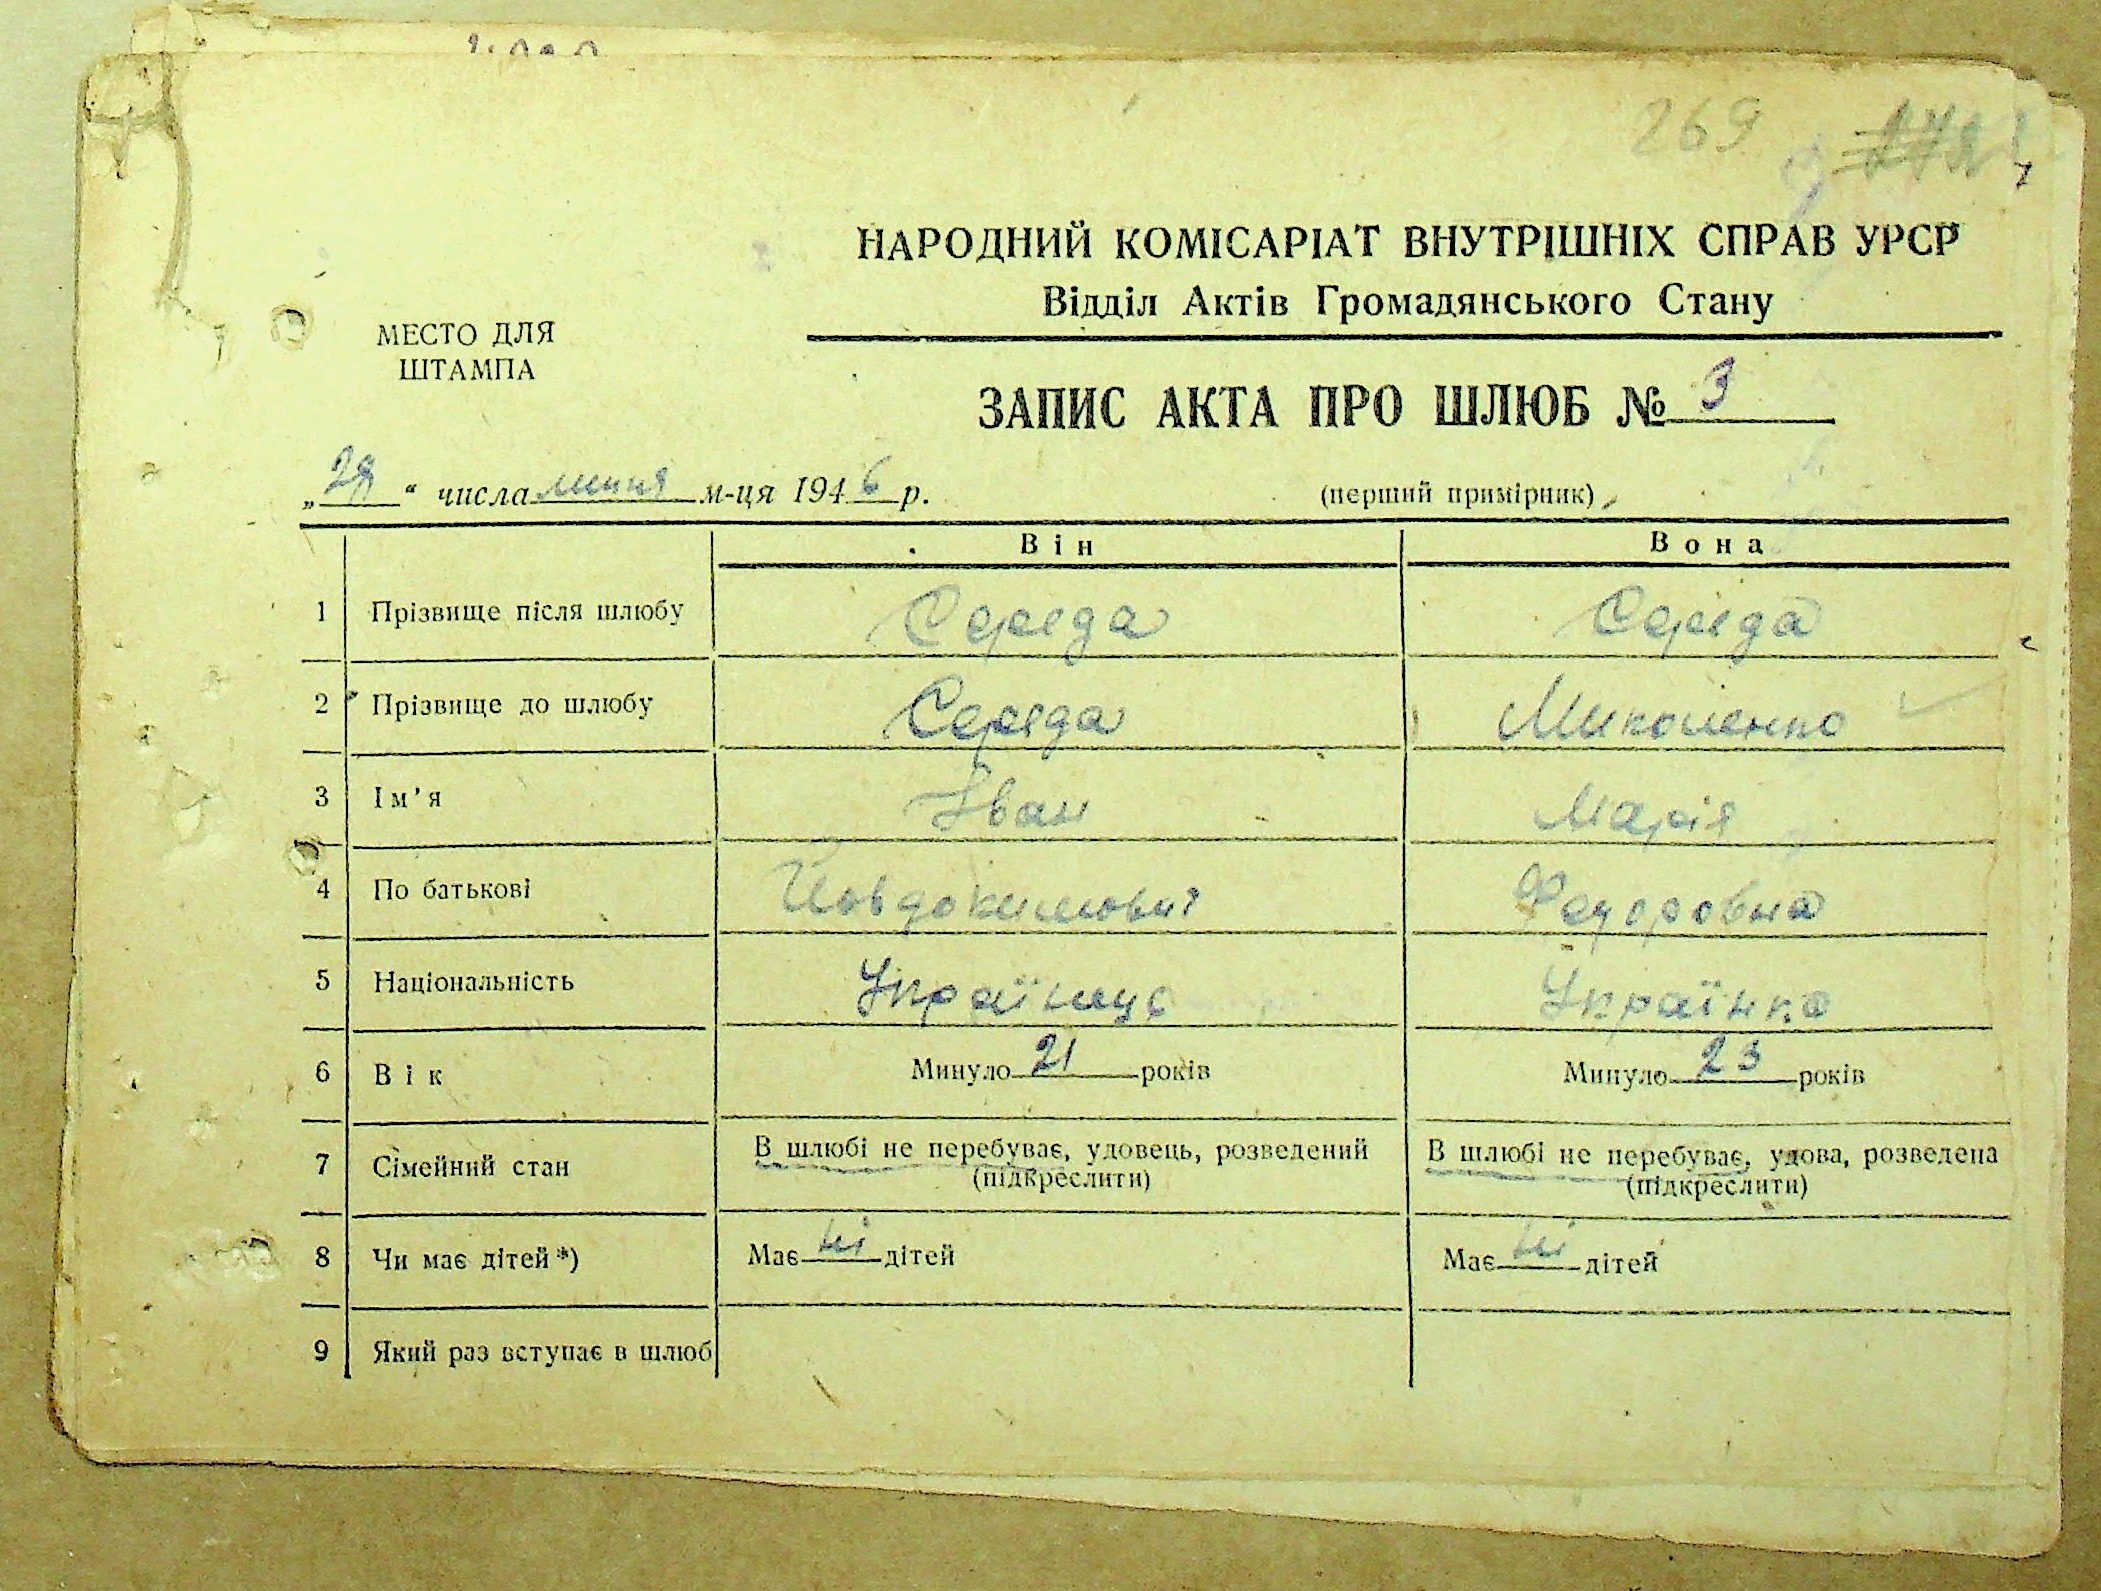 269
НАРОДНИЙ КОМІСАРІАТ ВНУТРІШНІХ СПРАВ УРСР
Відділ Актів Громадянського Стану
МЕСТО ДЛЯ
ШТАМПА
ЗАПИС АКТА ПРО ШЛЮБ № 3
„28“ числа липня м-ця 1946 р. (перший примірник)
Він Вона
1 Прізвище після шлюбу Середа Середа
2 Прізвище до шлюбу Середа Миколенко
3 Ім'я Іван Марія
4 По батькові Йовдокимович Федоровна
5 Національність Українець Українка
6 Вік Минуло 21 років Минуло 23 років
7 Сімейний стан В шлюбі не перебуває, удовець, розведений В шлюбі не перебуває, удова, розведена
(підкреслити) (підкреслити)
8 Чи має дітей*) Має ні дітей Має ні дітей
9 Який раз вступає в шлюб